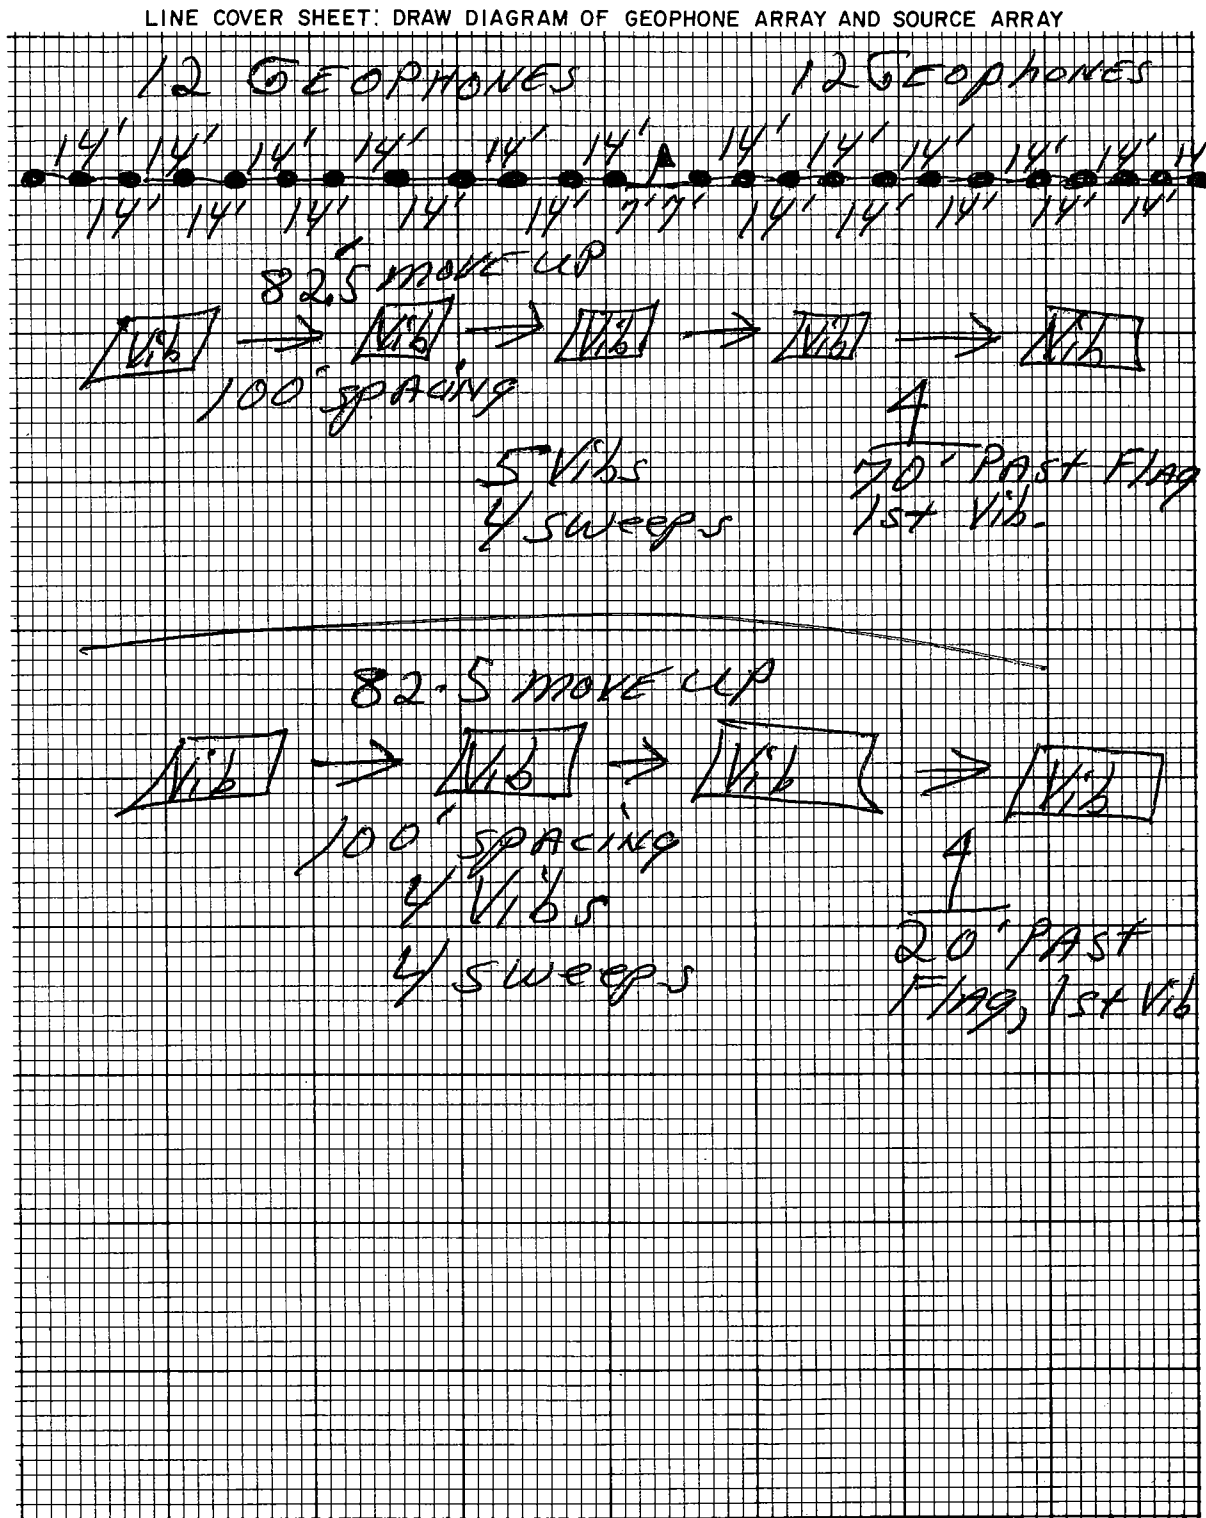 LINE COVER SHEET: DRAW DIAGRAM OF GEOPHONE ARRAY AND SOURCE ARRAY
12 GEOPHONES 12 GEOphONES
14' 14' 14' 14' 14' 14' 14' 14' 14' 14' 14' 14'
14' 14' 14' 14' 14' 7' 7' 14' 14' 14' 14' 14'
82.5' MOVE UP
Vib Vib Vib Vib Vib
100' SPACING
5 Vibs
4 sweeps
70' PAST Flag
1st Vib.
82.5 MOVE UP
Vib Vib Vib Vib
100' SPACING
4 Vibs
4 sweeps
20' PAST
Flag, 1st Vib